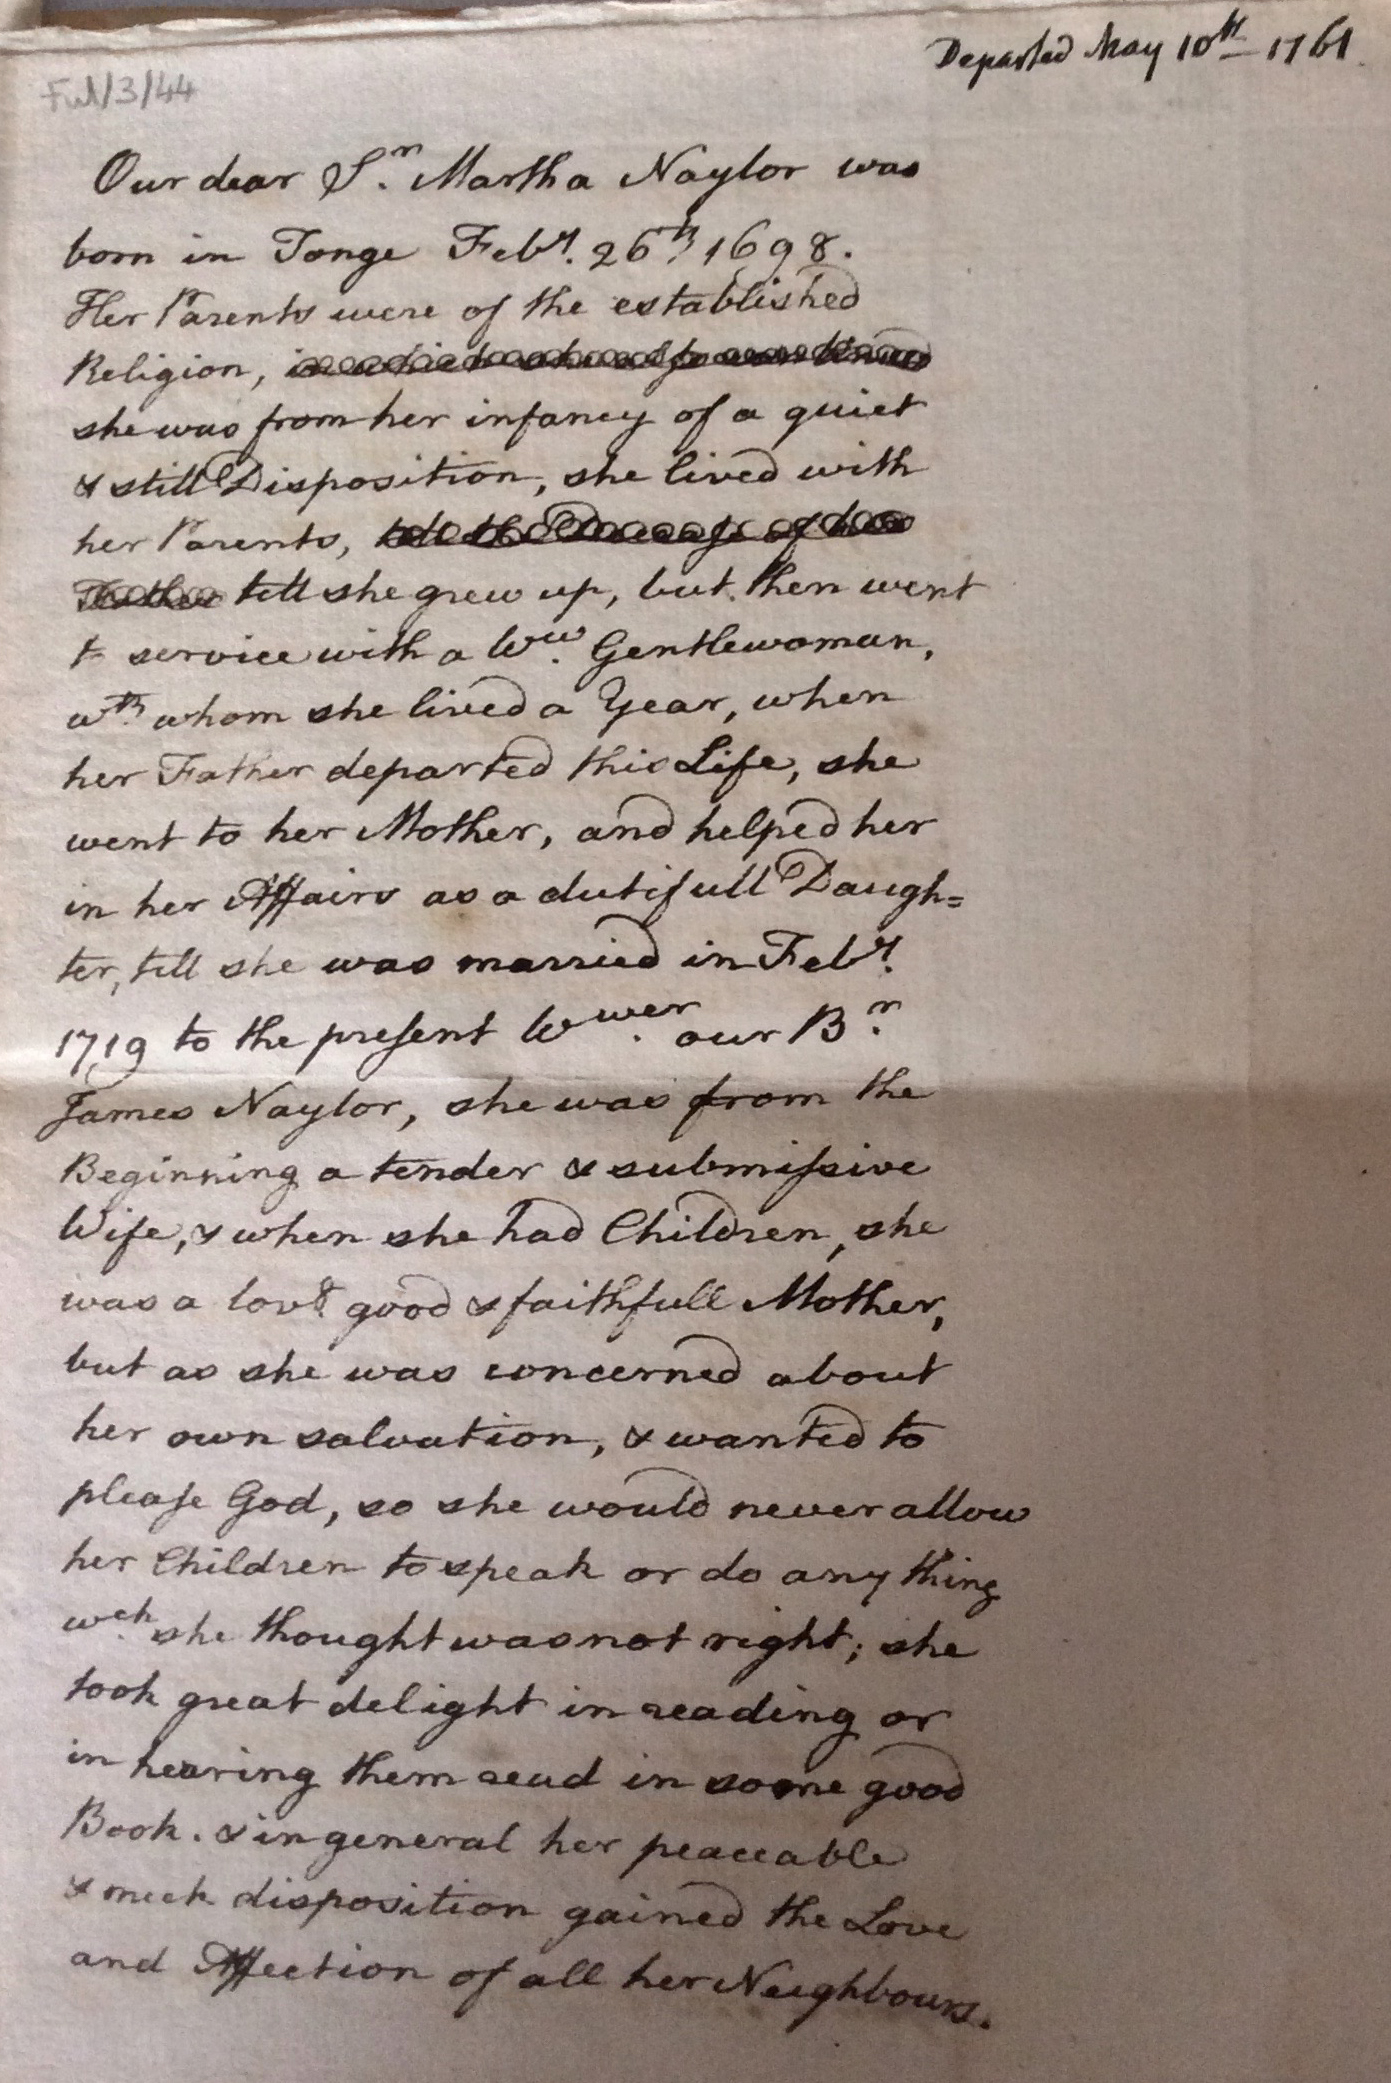 Departed May 10th 1761.
Ful/3/44
Our dear Sr. Martha Naylor was
born in Tonge Feby. 26th. 1698.
Her Parents were of the established
Religion,
she was from her infancy of a quiet
& still Disposition, she lived with
her Parents, till the Decease of her
Father till she grew up, but then went
to service with a Ww. Gentlewoman,
wth. whom she lived a Year, when
her Father departed this Life, she
went to her Mother, and helped her
in her Affairs as a dutifull Daugh=
ter, till she was married in Feby.
1719 to the present Wwer. our Br.
James Naylor, she was from the
Beginning a tender & submissive
Wife, & when she had Children, she
was a lovg. good & faithfull Mother,
but as she was concerned about
her own salvation, & wanted to
please God, so she would never allow
her Children to speak or do any thing
wch. she thought was not right; she
took great delight in reading or
in hearing them read in some good
Book. & in general her peaceable
& meek disposition gained the Love
and Affection of all her Neighbours.